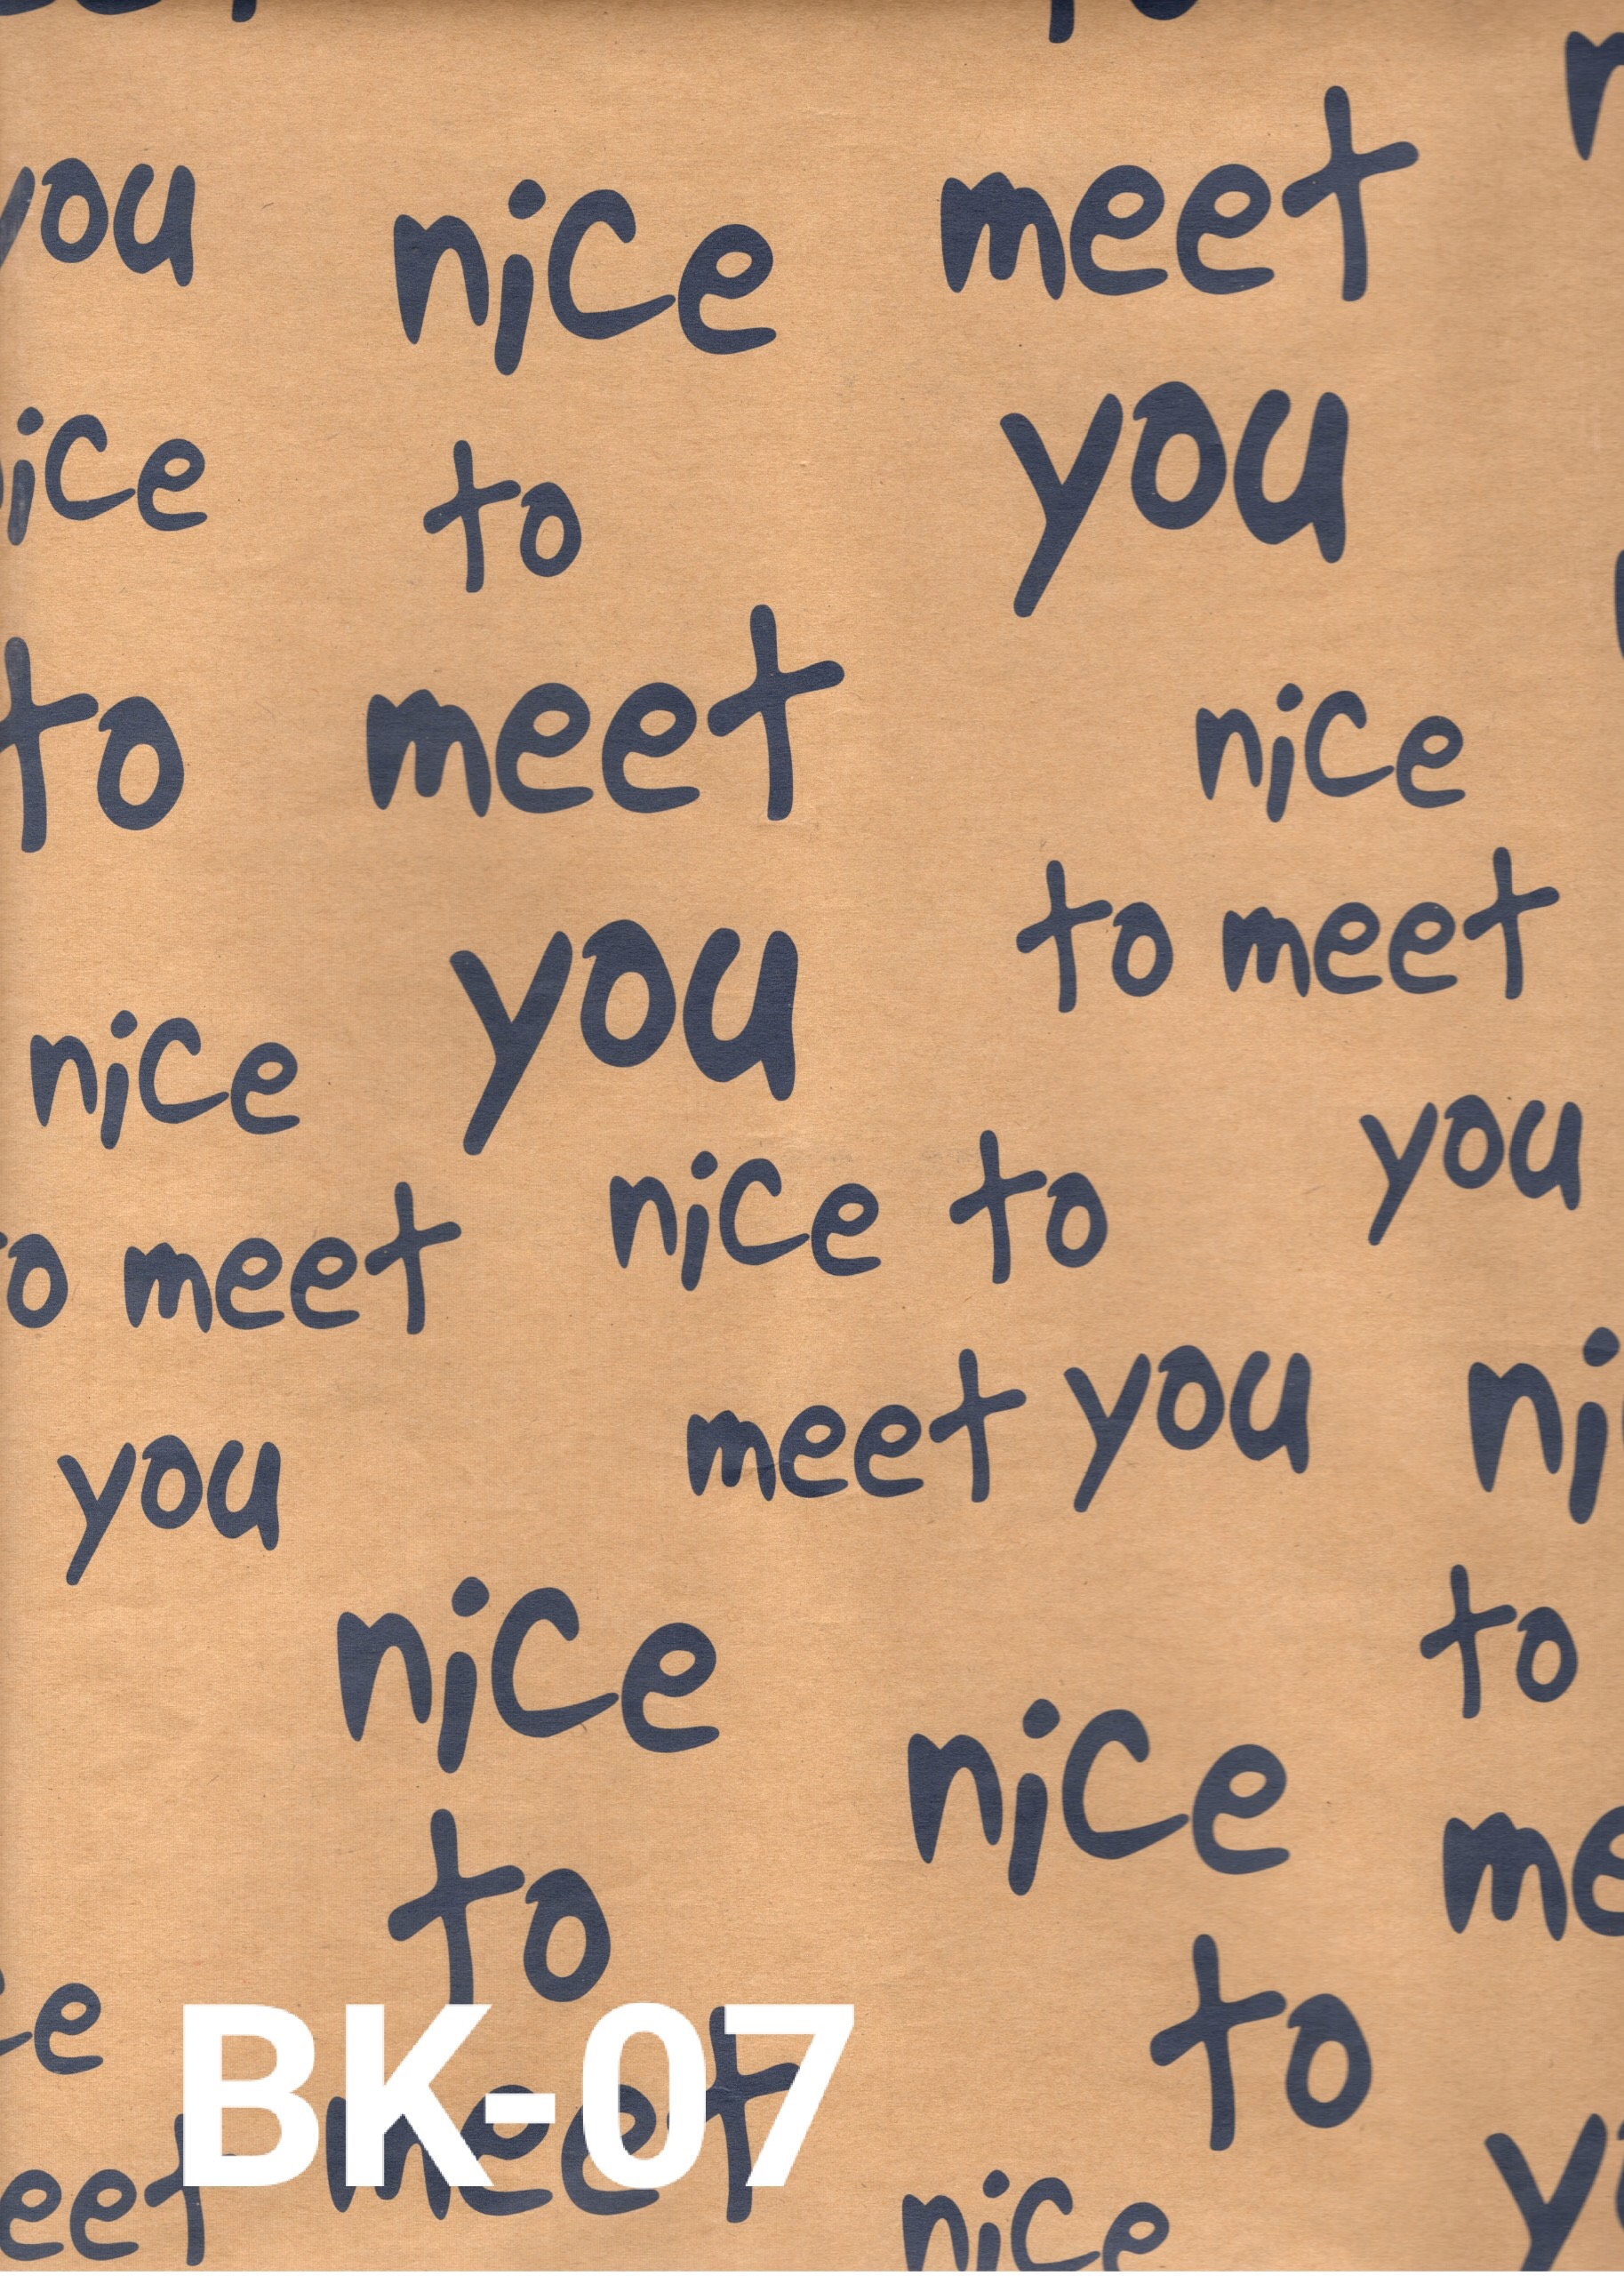 you
nice
meet
ice
to
you
to
meet
nice
you
to meet
nice
you
nice to
o meet
meet you
ni
you
nice
to
nice
me
to
e
to
BK-07
meet
eet
nice
y